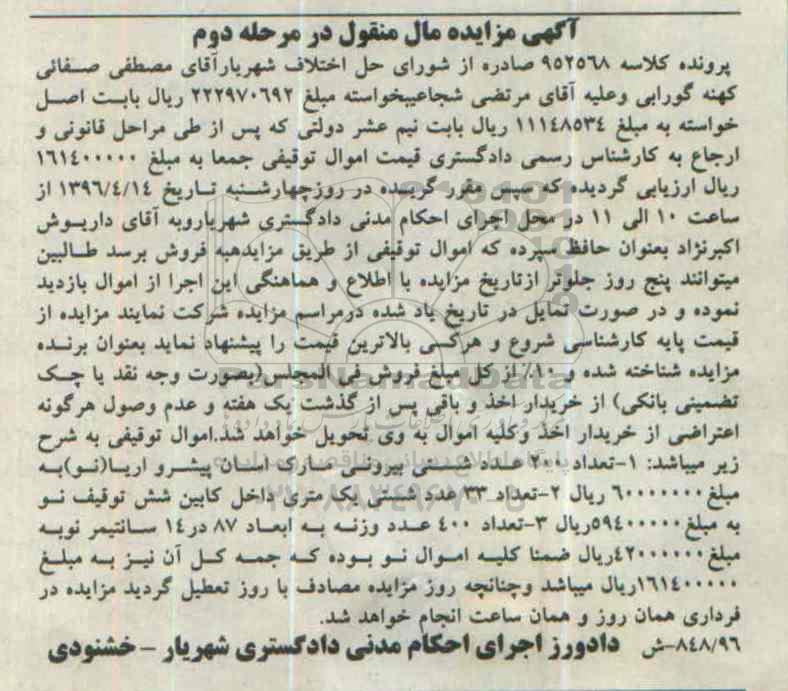 آگهی مزایده مال منقول در مرحله دوم
پرونده کلاسه ۹۵۲۵۶۸ صادره از شورای حل اختلاف شهریارآقای مصطفی صفائی
کهنه گورابی وعلیه آقای مرتضی شجاعیبخواسته مبلغ ۲۲۲۹۷۰۶۹۲ ریال بابت اصل
خواسته به مبلغ ۱۱۱٤۸۵۳٤ ریال بابت نیم عشر دولتی که پس از طی مراحل قانونی و
ارجاع به کارشناس رسمی دادگستری قیمت اموال توقیفی جمعا به مبلغ ۱٦۱٤۰۰۰۰۰
ریال ارزیابی گردیده که سپس مقرر گریده در روزچهارشنبه تاریخ ۱۳۹٦/٤/۱٤ از
ساعت ۱۰ الی ۱۱ در محل اجرای احکام مدنی دادگستری شهریاروبه آقای داریوش
اکبرنژاد بعنوان حافظ سپرده که اموال توقیفی از طریق مزایدهبه فروش برسد طالبین
میتوانند پنج روز جلوتر ازتاریخ مزایده با اطلاع و هماهنگی این اجرا از اموال بازدید
نموده و در صورت تمایل در تاریخ یاد شده درمراسم مزایده شرکت نمایند مزایده از
قیمت پایه کارشناسی شروع و هرکسی بالاترین قیمت را پیشنهاد نماید بعنوان برنده
مزایده شناخته شده و ۱۰٪ از کل مبلغ فروش فی المجلس(بصورت وجه نقد یا چک
تضمینی بانکی) از خریدار اخذ و باقی پس از گذشت یک هفته و عدم وصول هرگونه
اعتراضی از خریدار اخذ وکلیه اموال به وی تحویل خواهد شد.اموال توقیفی به شرح
زیر میباشد: ۱-تعداد ۲۰۰ عدد شستی بیرونی مارک اسان پیشرو اریا(نو)به
مبلغ ٦۰۰۰۰۰۰۰ ریال ۲-تعداد ۳۳ عدد شستی یک متری داخل کابین شش توقیف نو
به مبلغ ۵۹٤۰۰۰۰۰ریال ۳-تعداد ٤۰۰ عدد وزنه به ابعاد ۸۷ در۱٤ سانتیمر نوبه
مبلغ ٤۲۰۰۰۰۰۰ریال ضمنا کلیه اموال نو بوده که جمه کل آن نیز به مبلغ
۱٦۱٤۰۰۰۰۰ریال میباشد وچنانچه روز مزایده مصادف با روز تعطیل گردید مزایده در
فرداری همان روز و همان ساعت انجام خواهد شد.
۸٤۸/۹٦-ش دادورز اجرای احکام مدنی دادگستری شهریار – خشنودی